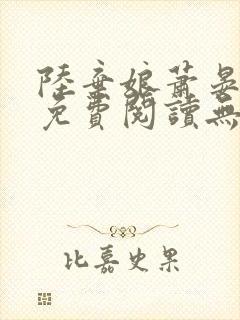 陸棄娘蕭晏
免費閱讀無
比嘉史果